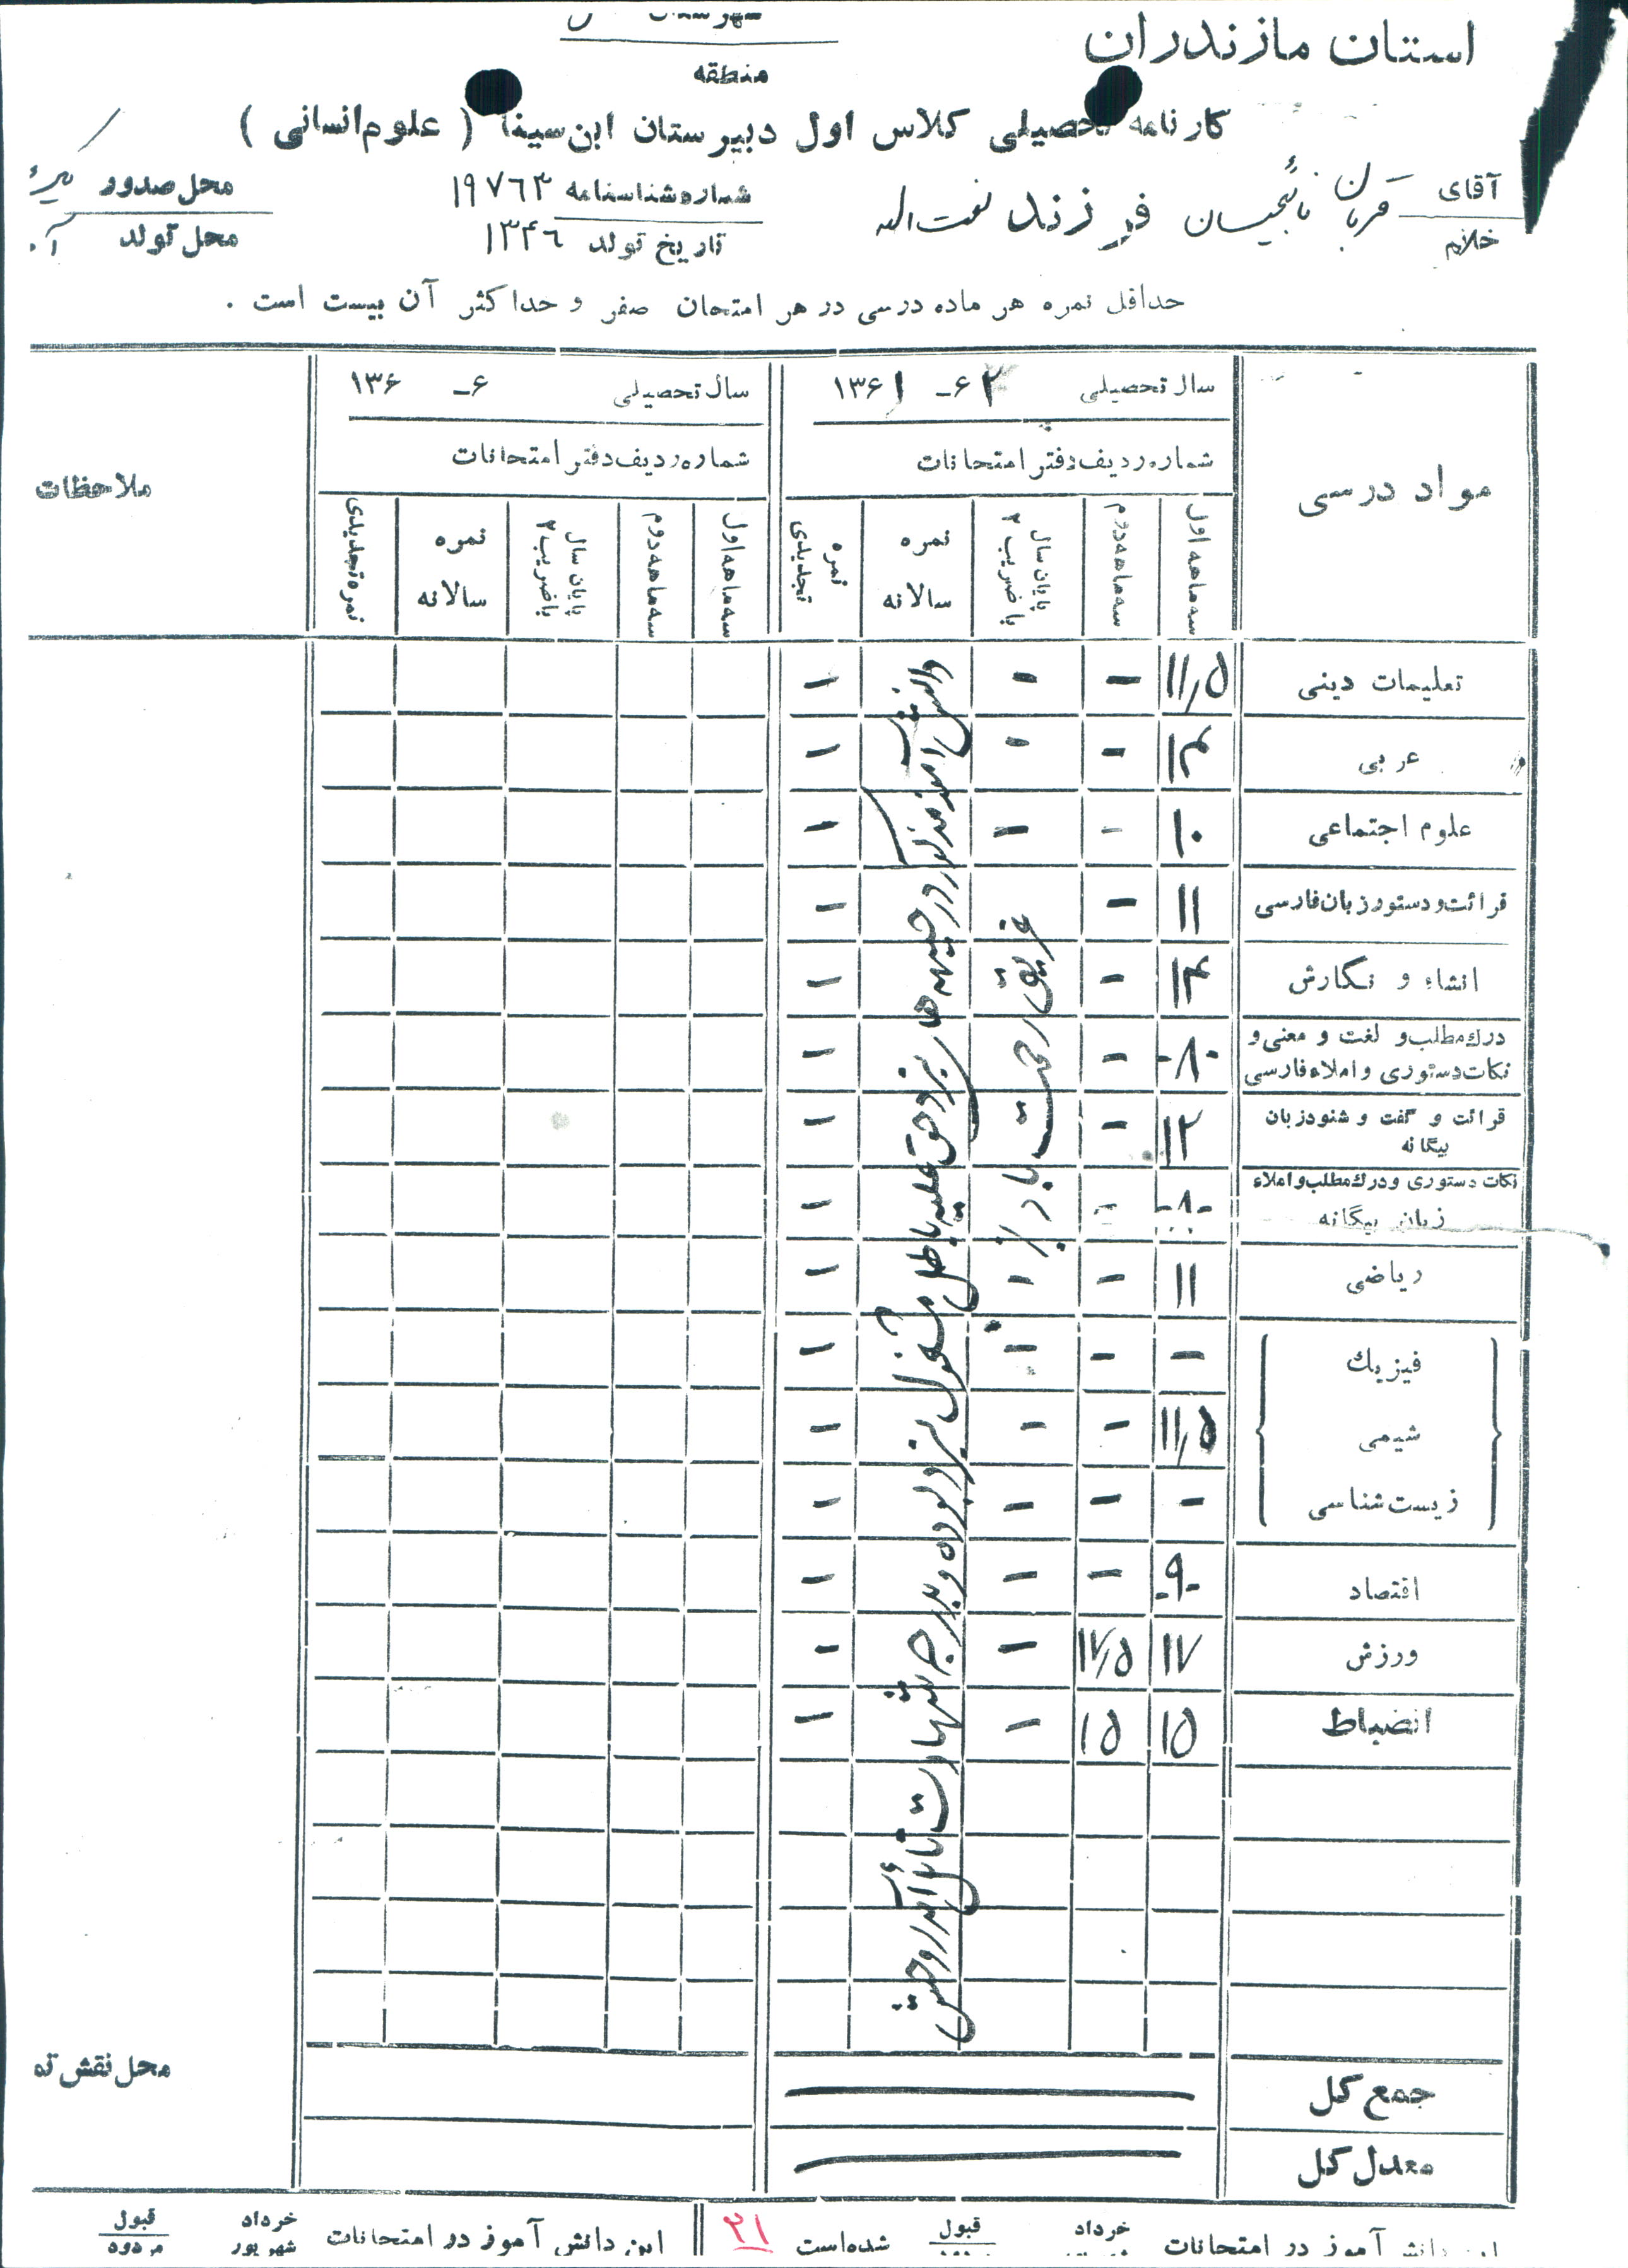 استان مازندران
منطقه
کارنامه تحصیلی کلاس اول دبیرستان ابن‌سینا ( علوم‌انسانی )
آقای
خانم
قربان
فرزند نعمت اله
شماره‌شناسنامه ۱۹۷۶۳
تاریخ تولد ۱۳۴۶
محل‌صدور
محل تولد
حداقل نمره هر ماده درسی در هر امتحان صفر و حداکثر آن بیست است .
مواد درسی
سال تحصیلی ۶۲ - ۱۳۶۱
سال تحصیلی ۶ - ۱۳۶
شماره ردیف دفتر امتحانات
شماره ردیف دفتر امتحانات
ملاحظات
سه ماهه اول
سه ماهه دوم
پایان سال با ضریب ۲
نمره سالانه
نمره تجدیدی
سه ماهه اول
سه ماهه دوم
پایان سال با ضریب ۲
نمره سالانه
نمره تجدیدی
تعلیمات دینی ۱۱/۵ - - -
عربی ۱۴ - - -
علوم اجتماعی ۱۰ - - -
قرائت و دستور زبان فارسی ۱۱ - -
انشاء و نگارش ۱۴ - -
درك مطلب و لغت و معنی و
نکات دستوری و املاء فارسی -۸- - -
قرائت و گفت و شنود زبان
بیگانه ۱۲ - -
نکات دستوری و درك مطلب و املاء
زبان بیگانه -۸- - -
ریاضی ۱۱ - - -
فیزیك - - - -
شیمی ۱۱/۵ - - -
زیست شناسی - - - -
اقتصاد -۹- - - -
ورزش ۱۷ ۱۷/۵ - -
انضباط ۱۵ ۱۵ - -
دانش آموز مذکور در جبهه های نبرد حق علیه باطل مشغول نبرد بوده و بدرجه شهادت نائل آمد روحش
غریق رحمت باد
جمع کل
معدل کل
محل نقش ته
این دانش آموز در امتحانات
خرداد
قبول
شده‌است
۲۱
این دانش آموز در امتحانات
خرداد
شهریور
قبول
مردود